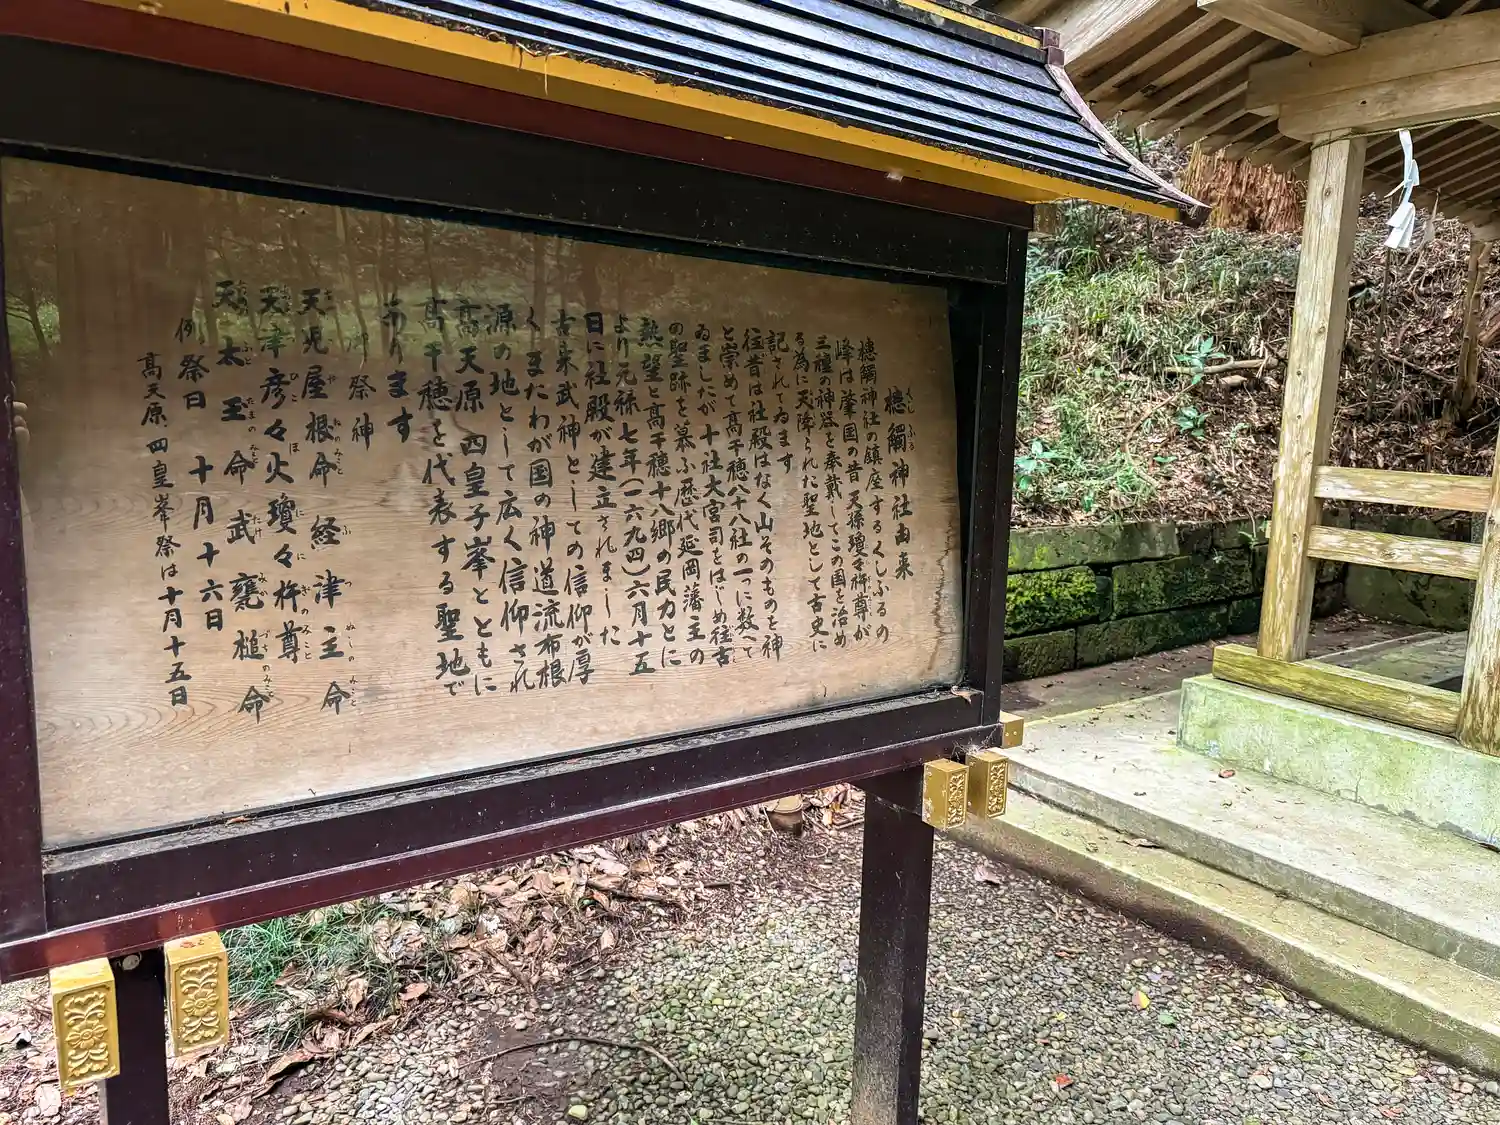 槵觸神社由来
槵觸神社の鎮座するくしふるの
峰は肇国の昔 天孫瓊々杵尊が
三種の神器を奉戴してこの国を治め
る為に天降られた聖地として古史に
記されてゐます
往昔は社殿はなく山そのものを神
と崇めて高千穂八十八社の一つに数へて
ゐましたが十社大宮司をはじめ往古
の聖跡を慕ふ歴代延岡藩主の
熱望と高千穂十八郷の民力とに
より元禄七年(一六九四)六月十五
日に社殿が建立されました
古来武神としての信仰が厚
くまたわが国の神道流布根
源の地として広く信仰され
高天原 四皇子峯とともに
高千穂を代表する聖地で
あります
祭神
天児屋根命 経津主命
天津彦々火瓊々杵尊
天太玉命 武甕槌命
例祭日 十月十六日
高天原 四皇峯祭は十月十五日